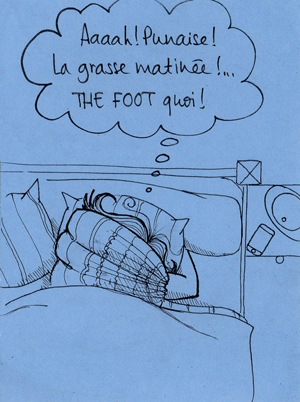 Aaaah! Punaise!
La grasse matinée!...
THE FOOT quoi!